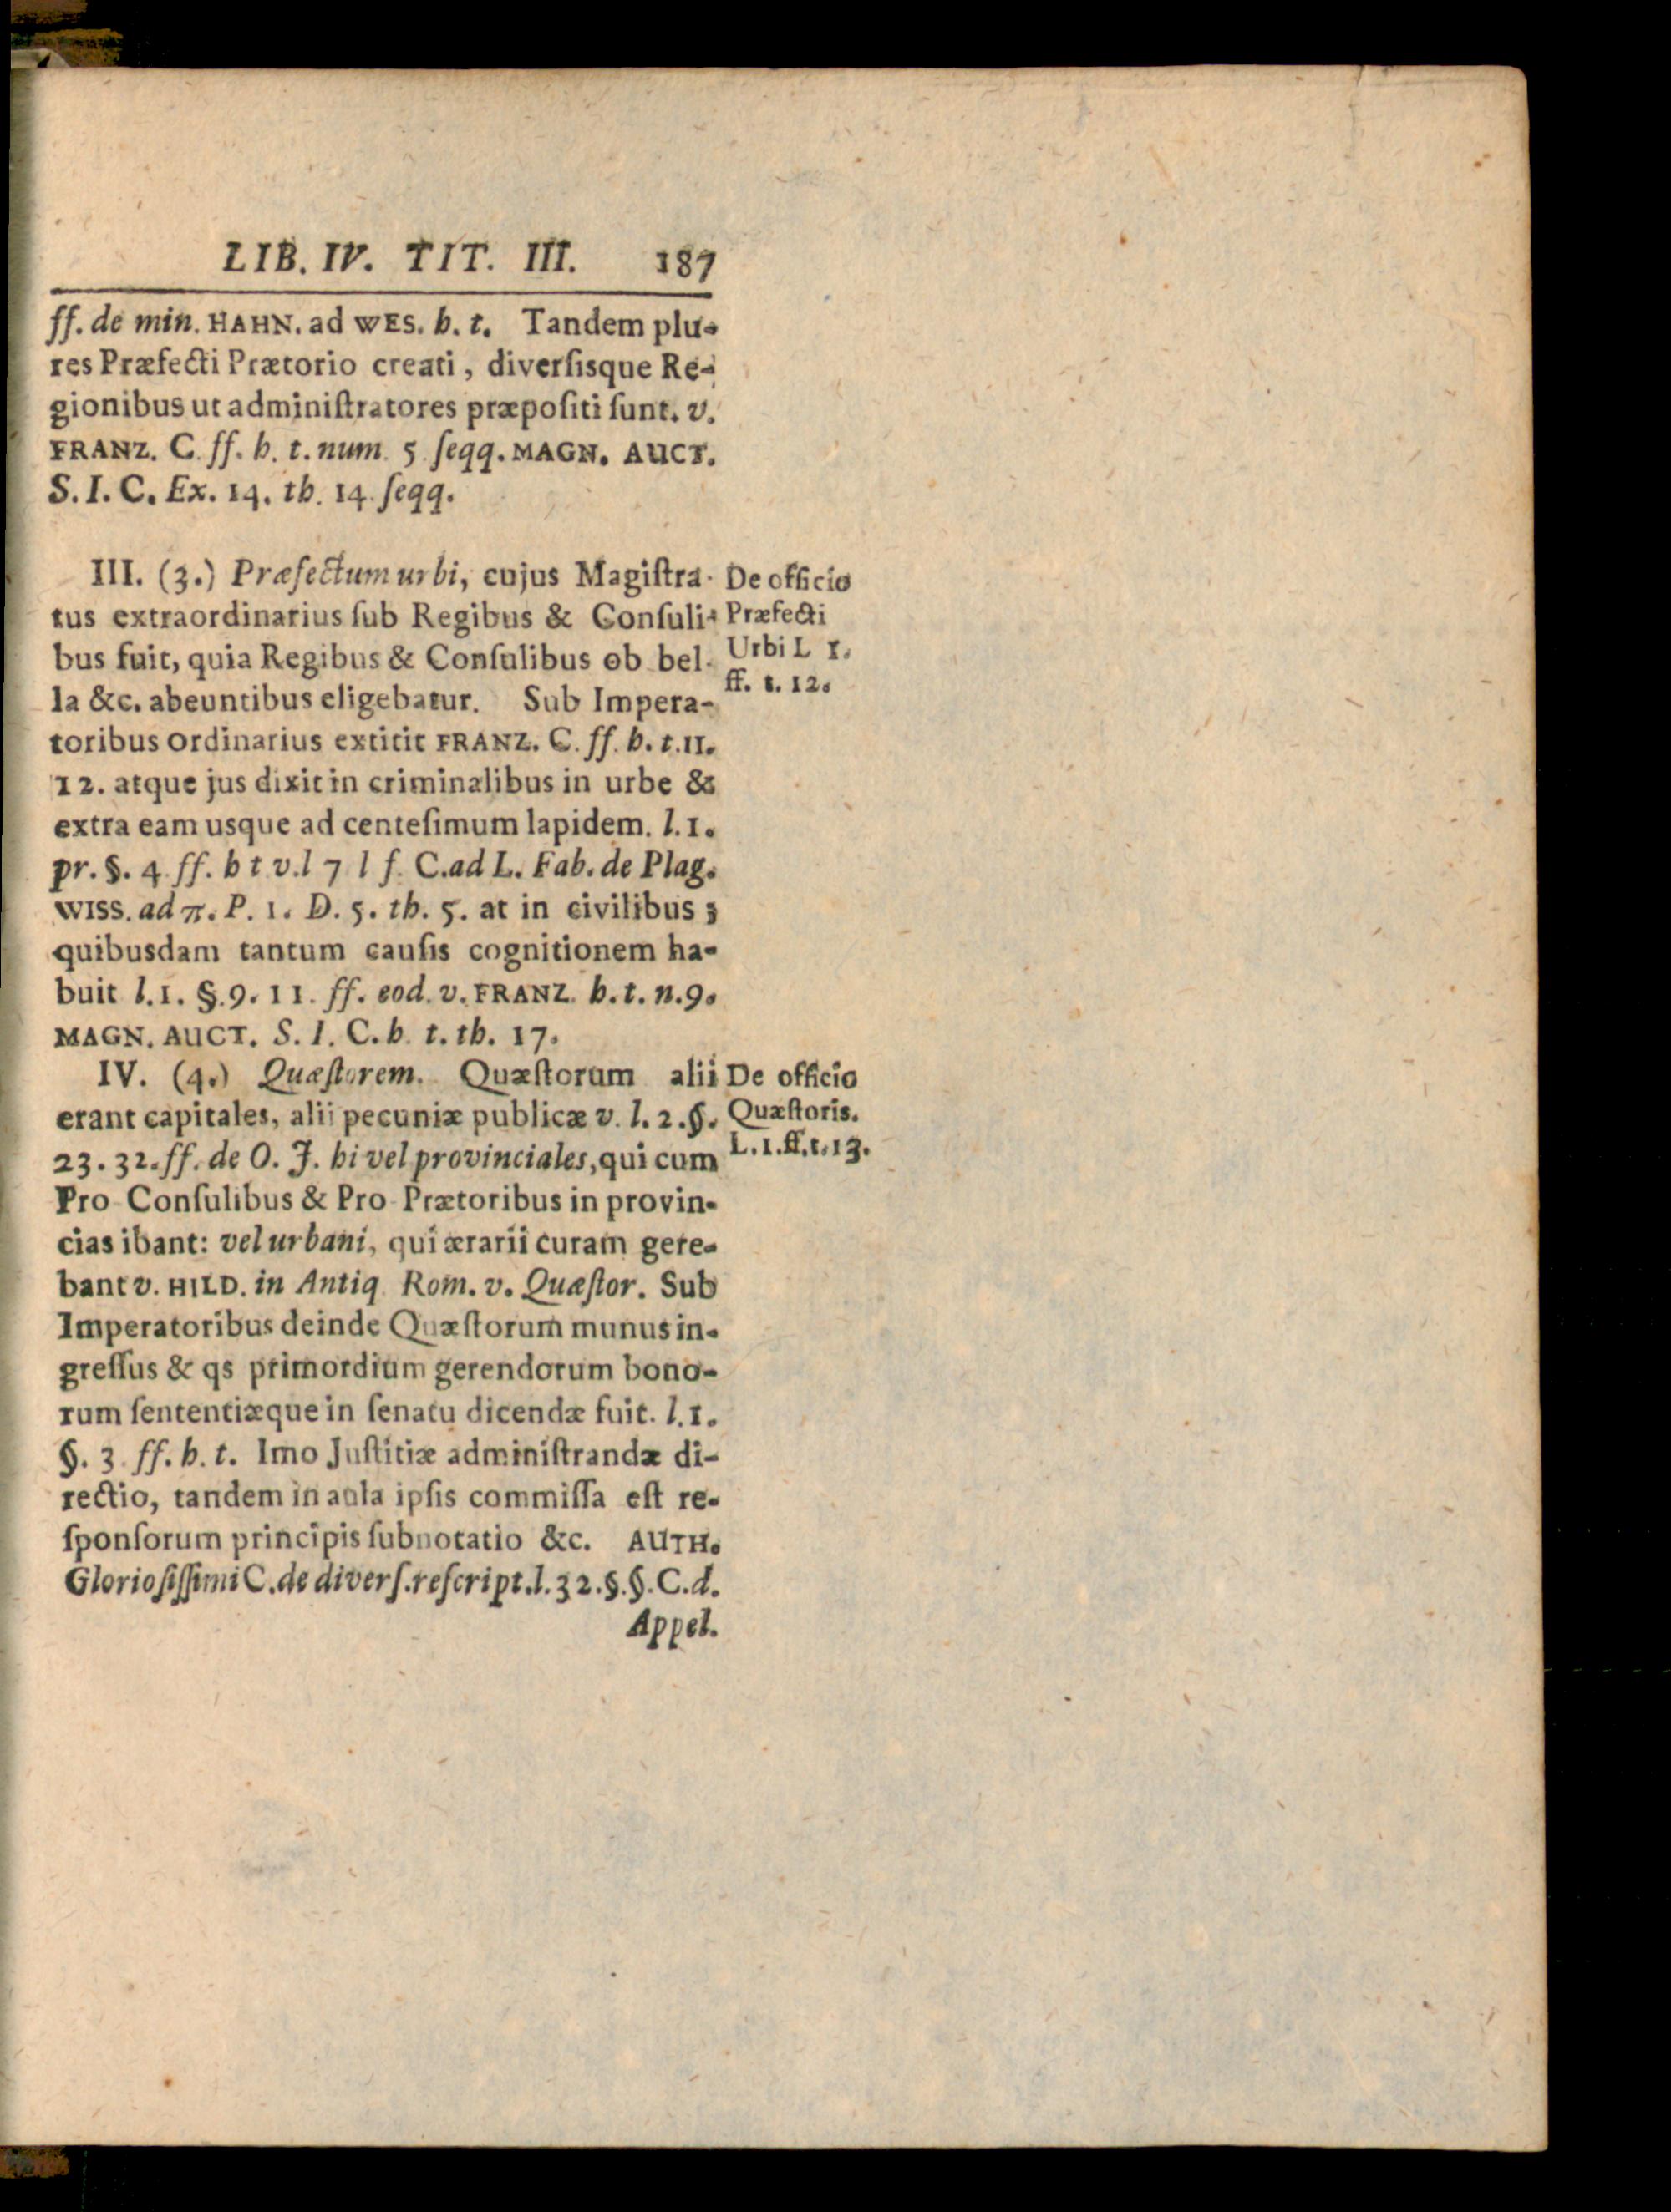 LIB. IV. TIT. III. 187
ff. de min. HAHN. ad WES. h. t. Tandem plu-
res Præfecti Prætorio creati, diverſisque Re-
gionibus ut adminiſtratores præpoſiti ſunt. v.
FRANZ. C. ff. h. t. num. 5 ſeqq. MAGN. AUCT.
S. I. C. Ex. 14. th. 14. ſeqq.
III. (3.) Præfectum urbi, cujus Magiſtra-
tus extraordinarius ſub Regibus & Conſuli-
bus fuit, quia Regibus & Conſulibus ob bel-
la &c. abeuntibus eligebatur. Sub Impera-
toribus ordinarius extitit FRANZ. C. ff. h. t. 11.
12. atque jus dixit in criminalibus in urbe &
extra eam usque ad centeſimum lapidem. l. 1.
pr. §. 4. ff. h t v. l 7 l f. C. ad L. Fab. de Plag.
WISS. ad π. P. 1. D. 5. th. 5. at in civilibus ;
quibusdam tantum cauſis cognitionem ha-
buit l. 1. §. 9. 11. ff. eod. v. FRANZ. h. t. n. 9.
MAGN. AUCT. S. I. C. h. t. th. 17.
De officio
Præfecti
Urbi L 1.
ff. t. 12.
IV. (4.) Quæſtorem. Quæſtorum alii
erant capitales, alii pecuniæ publicæ v. l. 2. §.
23. 32. ff. de O. J. hi vel provinciales, qui cum
Pro-Conſulibus & Pro-Prætoribus in provin-
cias ibant: vel urbani, qui ærarii curam gere-
bant v. HILD. in Antiq. Rom. v. Quæſtor. Sub
Imperatoribus deinde Quæſtorum munus in-
greſſus & qs primordium gerendorum hono-
rum ſententiæque in ſenatu dicendæ fuit. l. 1.
§. 3. ff. h. t. Imo Juſtitiæ adminiſtrandæ di-
rectio, tandem in aula ipſis commiſſa eſt re-
ſponſorum principis ſubnotatio &c. AUTH.
Glorioſiſſimi C. de diverſ. reſcript. l. 32. §. §. C. d.
Appel.
De officio
Quæſtoris.
L. 1. ff. t. 13.